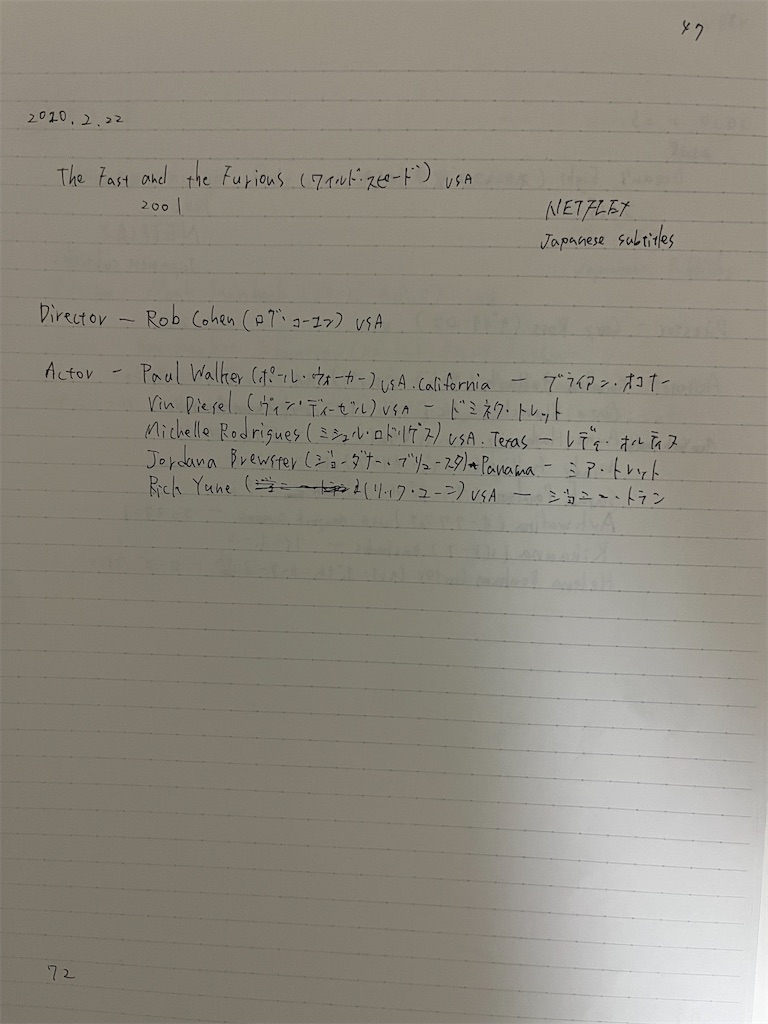 47
2020.2.22
The Fast and the Furious (ワイルド・スピード) USA
2001
NETFLEX
Japanese subtitles
Director - Rob Cohen (ロブ・コーエン) USA
Actor - Paul Walker (ポール・ウォーカー) USA.California - ブライアン・オコナー
Vin Diesel (ヴィン・ディーゼル) USA - ドミネク・トレット
Michelle Rodrigues (ミシェル・ロドリゲス) USA.Texas - レティ・オルティス
Jordana Brewster (ジョーダナー・ブリュースタ) Panama - ミア・トレット
Rich Yune (リック・ユーニ) USA - ジョニー・トラン
72